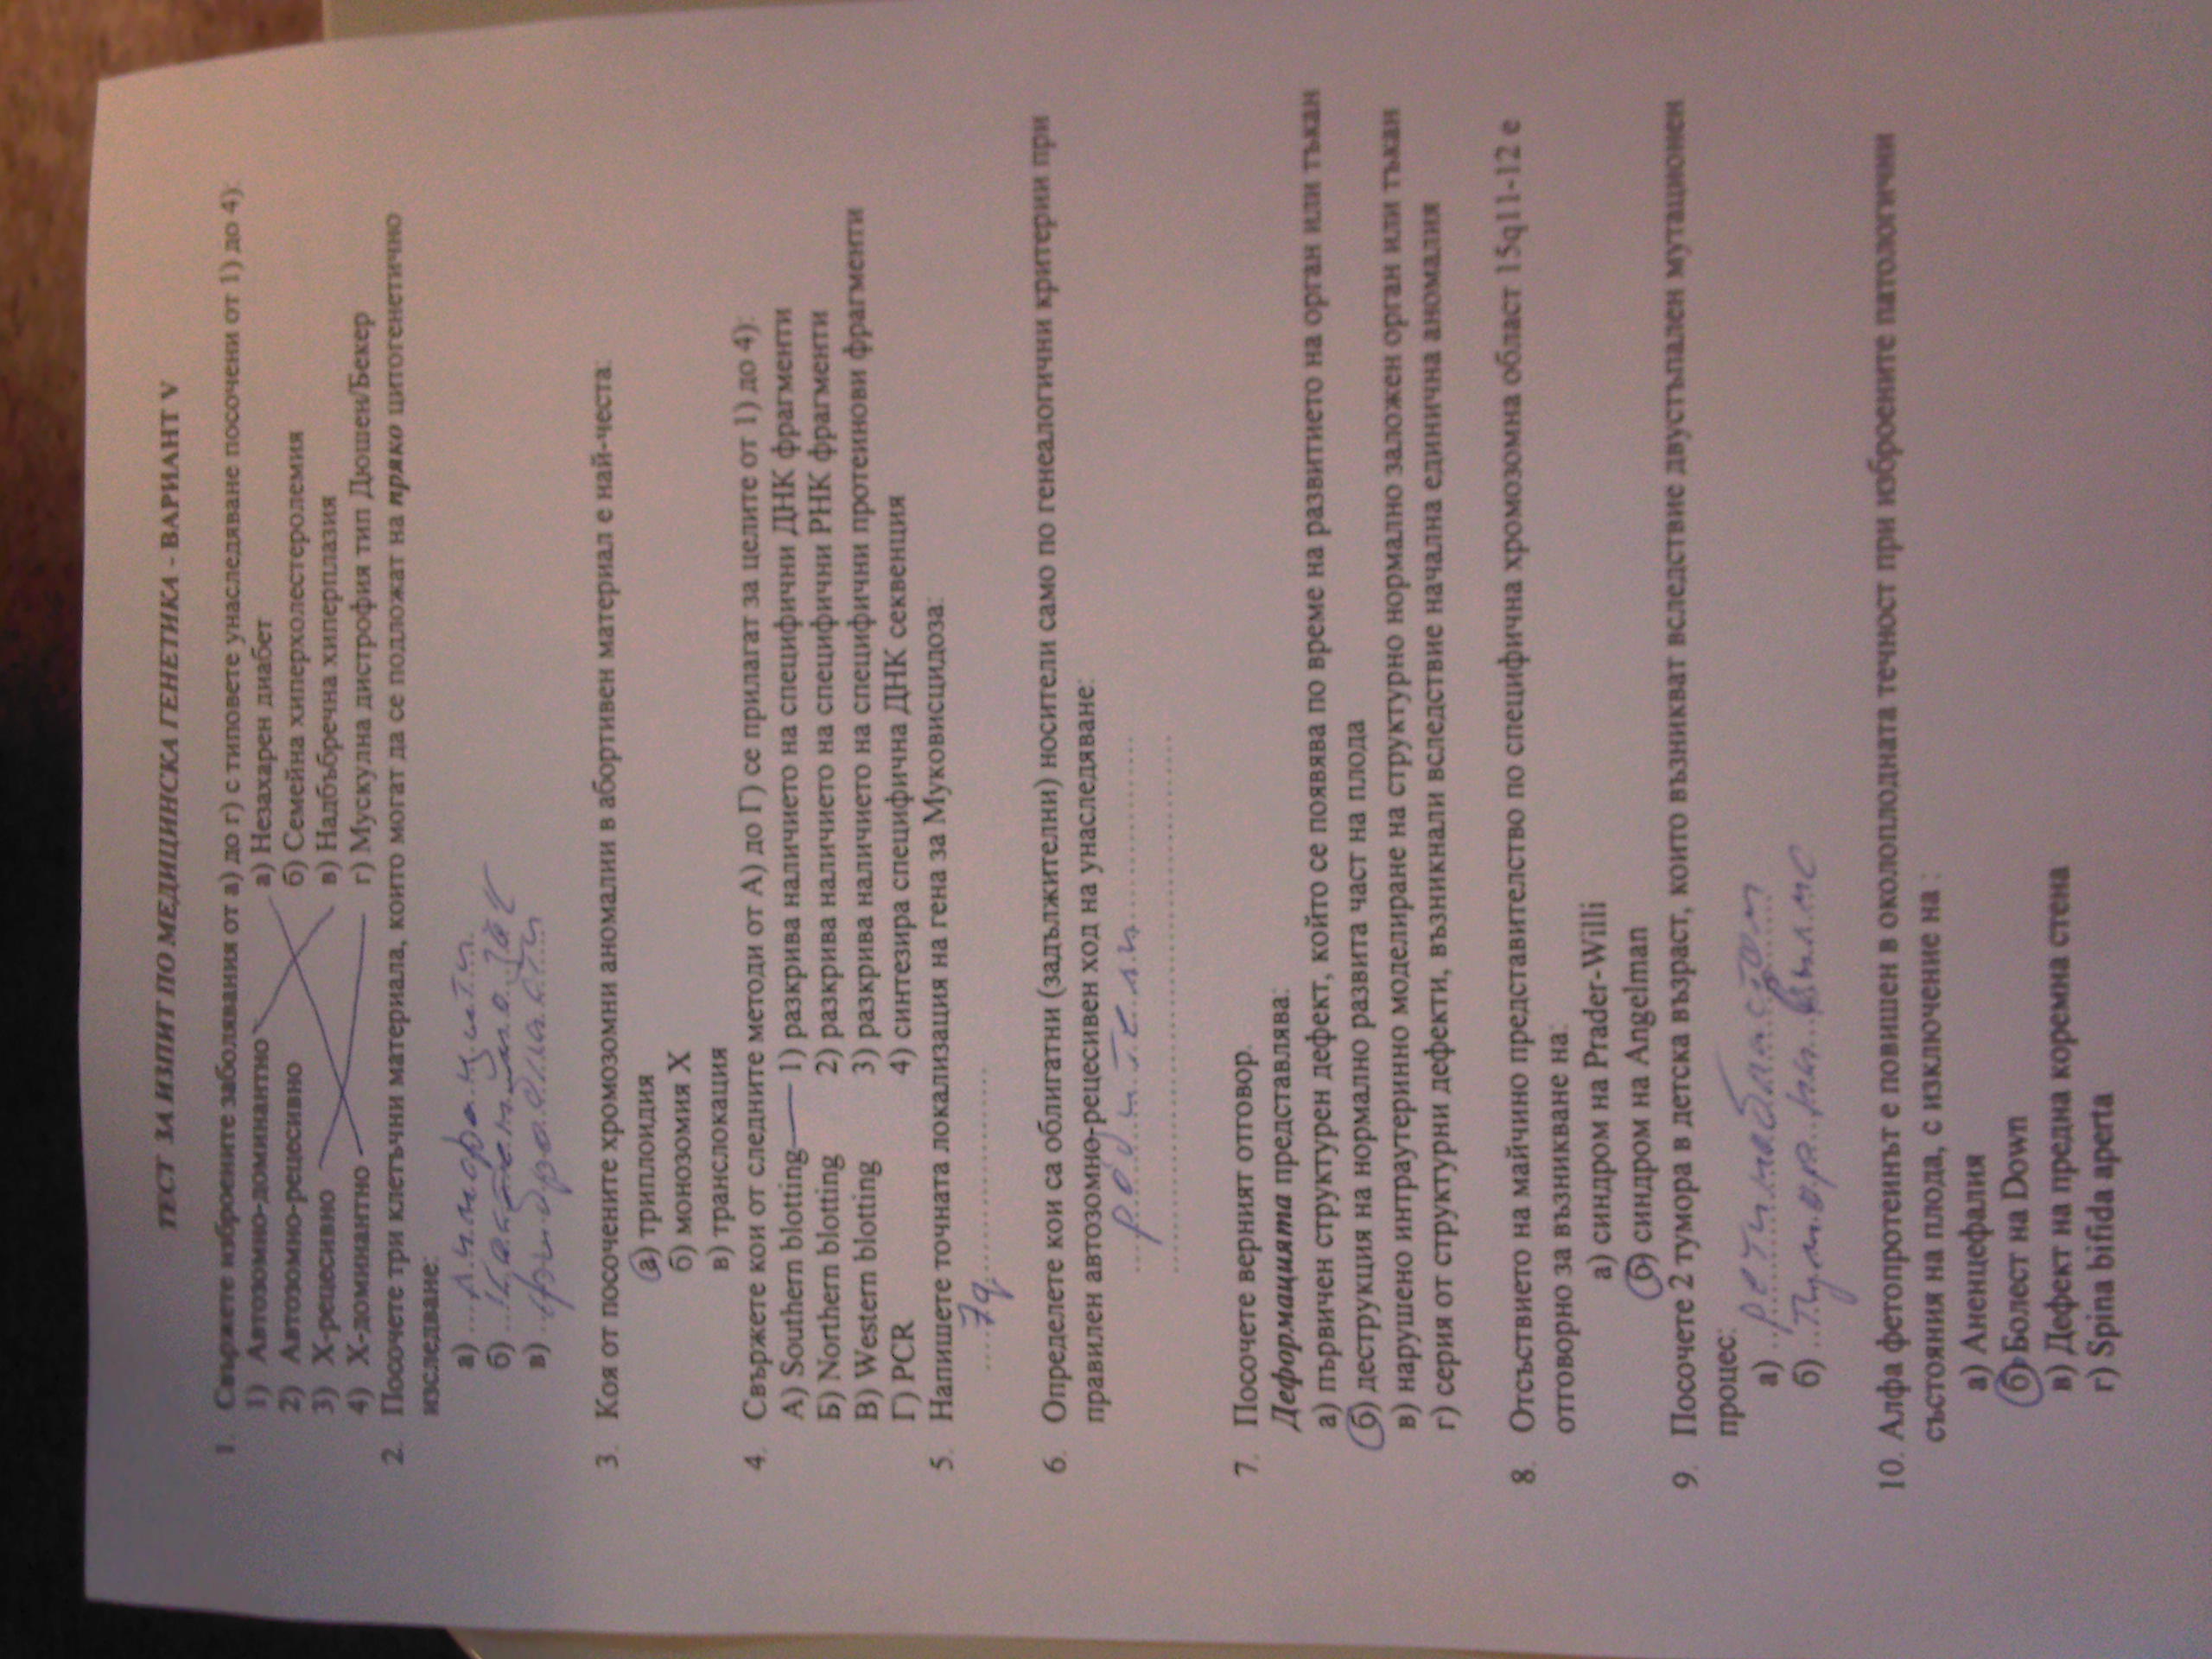 ТЕСТ ЗА ИЗПИТ ПО МЕДИЦИНСКА ГЕНЕТИКА - ВАРИАНТ V
1. Свържете изброените заболявания от а) до г) с типовете унаследяване посочени от 1) до 4):
1) Автозомно-доминантно а) Незахарен диабет
2) Автозомно-рецесивно б) Семейна хиперхолестеролемия
3) Х-рецесивно в) Надбъбречна хиперплазия
4) Х-доминантно г) Мускулна дистрофия тип Дюшен/Бекер
2. Посочете три клетъчни материала, които могат да се подложат на пряко цитогенетично
изследване:
а) лимфоцити
б)
в) фибробласти
3. Коя от посочените хромозомни аномалии в абортивен материал е най-честа:
а) триплоидия
б) монозомия Х
в) транслокация
4. Свържете кои от следните методи от А) до Г) се прилагат за целите от 1) до 4):
А) Southern blotting 1) разкрива наличието на специфични ДНК фрагменти
Б) Northern blotting 2) разкрива наличието на специфични РНК фрагменти
В) Western blotting 3) разкрива наличието на специфични протеинови фрагменти
Г) PCR 4) синтезира специфична ДНК секвенция
5. Напишете точната локализация на гена за Муковисцидоза:
7q
6. Определете кои са облигатни (задължителни) носители само по генеалогични критерии при
правилен автозомно-рецесивен ход на унаследяване:
родители
7. Посочете верният отговор.
Деформацията представлява:
а) първичен структурен дефект, който се появява по време на развитието на орган или тъкан
б) деструкция на нормално развита част на плода
в) нарушено интраутеринно моделиране на структурно нормално заложен орган или тъкан
г) серия от структурни дефекти, възникнали вследствие начална единична аномалия
8. Отсъствието на майчино представителство по специфична хромозомна област 15q11-12 е
отговорно за възникване на:
а) синдром на Prader-Willi
б) синдром на Angelman
9. Посочете 2 тумора в детска възраст, които възникват вследствие двустъпален мутационен
процес:
а) ретинобластом
б) Тумора на Вилмс
10. Алфа фетопротеинът е повишен в околоплодната течност при изброените патологични
състояния на плода, с изключение на :
а) Аненцефалия
б) Болест на Down
в) Дефект на предна коремна стена
г) Spina bifida aperta